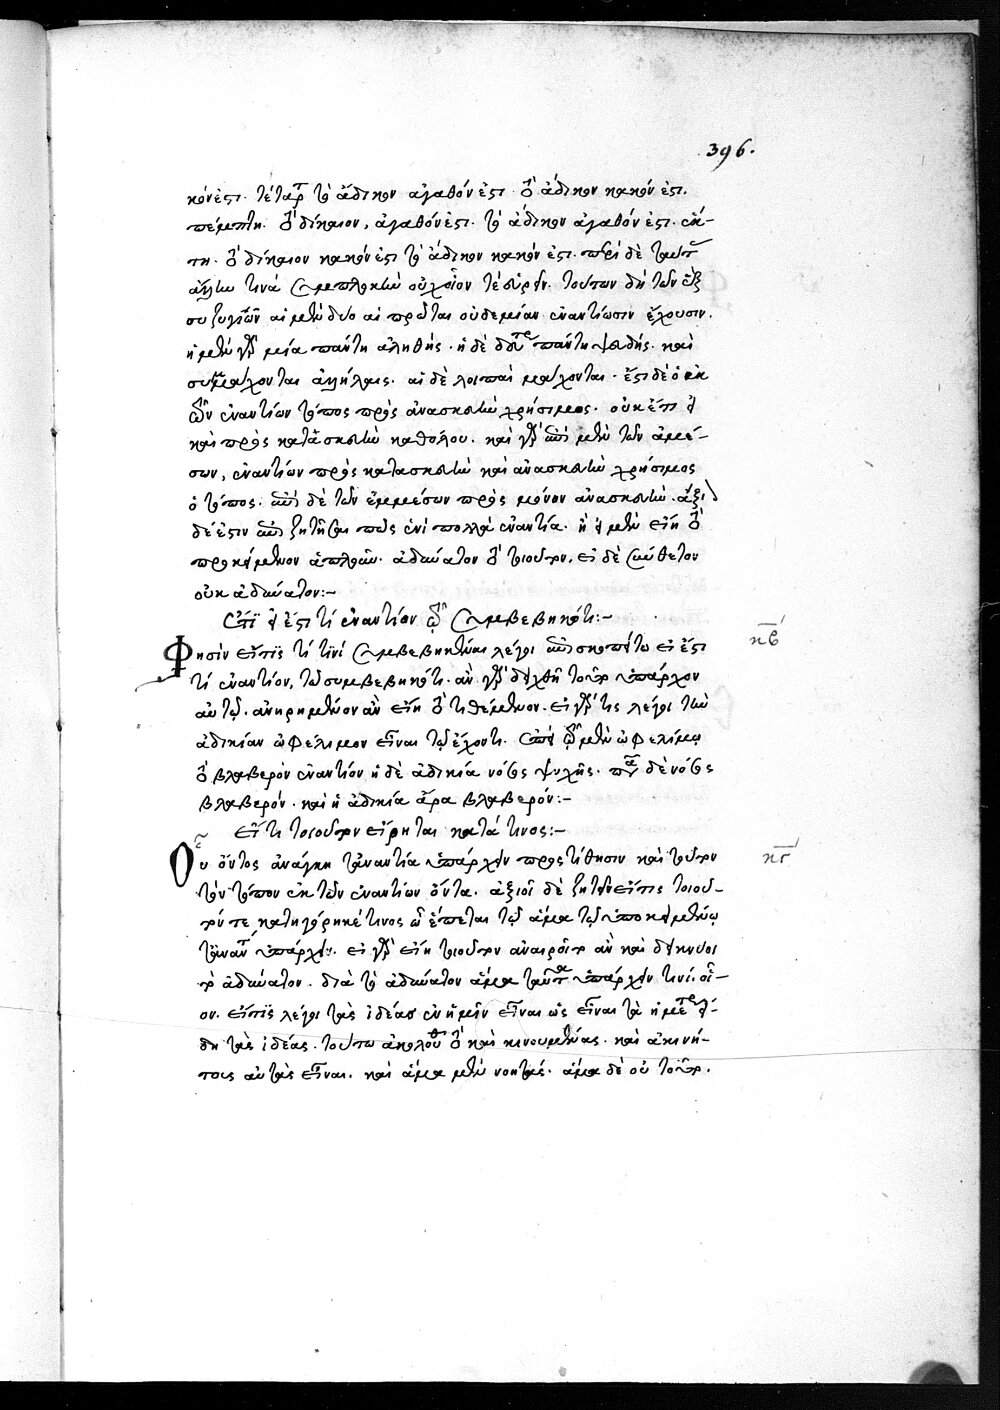 396.
κόν ἐστι. τέταρτον τὸ ἄδικον ἀγαθόν ἐστι. τὸ ἄδικον κακόν ἐστι.
πέμπτη. τὸ δίκαιον, ἀγαθόν ἐστι. τὸ ἄδικον ἀγαθόν ἐστι. ἕκ-
τη. τὸ δίκαιον κακόν ἐστι τὸ ἄδικον κακόν ἐστι. παρὰ δὲ ταύτας
ἄλλην τινὰ συμπλοκὴν οὐχ οἷόν τέ εὑρεῖν. τούτων δὴ τῶν ἓξ
συζυγιῶν αἱ μὲν δύο αἱ πρῶται οὐδεμίαν ἐναντίωσιν ἔχουσιν.
ἡ μὲν γὰρ μία πάντη ἀληθής. ἡ δὲ δευτέρα πάντη ψευδής. καὶ
συμμάχονται ἀλλήλαις. αἱ δὲ λοιπαὶ μάχονται. ἔστι δὲ ὁ ἐκ
τῶν ἐναντίων τόπος πρὸς ἀνασκευὴν χρήσιμος. οὐκέτι δὲ
καὶ πρὸς κατασκευὴν καθόλου. καὶ γὰρ ἐπὶ μὲν τῶν ἀμέ-
σων, ἐναντίων πρὸς κατασκευὴν καὶ ἀνασκευὴν χρήσιμος
ὁ τόπος. ἐπὶ δὲ τῶν ἐμμέσων πρὸς μόνον ἀνασκευὴν. ἄξιον
δέ ἐστιν ἐπιζητῆσαι πῶς ἑνὶ πολλὰ ἐναντία. ἢ εἰ μὲν εἴη τὸ
προκείμενον ἁπλοῦν. ἀδύνατον τὸ τοιοῦτον. εἰ δὲ σύνθετον
οὐκ ἀδύνατον:–
Ἐπεὶ εἰ ἔστι τί ἐναντίον τῷ συμβεβηκότι:–
κβ
Φησὶν εἴ τις τί τινί συμβεβηκέναι λέγοι ἐπισκοπείτω εἰ ἔστι
τί ἐναντίον, τῶ συμβεβηκότι. ἂν γὰρ δειχθῆ τοῦτο ὑπάρχον
αὐτῷ. ἀνῃρημένον ἂν εἴη τὸ τιθέμενον. εἰ γάρ τις λέγοι τὴν
ἀδικίαν ὠφέλιμον εἶναι τῷ ἔχοντι. ἐπεὶ τῷ μὲν ὠφελίμῳ
τὸ βλαβερὸν ἐναντίον ἡ δὲ ἀδικία νόσος ψυχῆς. πᾶσα δὲ νόσος
βλαβερόν. καὶ ἡ ἀδικία ἄρα βλαβερόν:–
Εἴ τι τοιοῦτον εἴρηται κατά τινος:–
κγ
Οὗ ὄντος ἀνάγκη τἀναντία ὑπάρχειν προστίθησιν καὶ τοῦτον
τὸν τόπον ἐκ τῶν ἐναντίων ὄντα. ἀξιοῖ δὲ ζητεῖν εἴ τις τοιοῦ-
τόν τε κατηγόρηκέ τινος ᾧ ἕπεται τῷ ἅμα τῷ ὑποκειμένῳ
τἀναντία ὑπάρχειν. εἰ γὰρ εἴη τοιοῦτον ἀναιροῖτο ἂν καὶ δεικνύοι
τὸ ἀδύνατον. διὰ τὸ ἀδύνατον ἅμα ταὐτὰ ὑπάρχειν τινί. οἷ-
ον. εἴ τις λέγοι τὰς ἰδέας ἐν ἡμῖν εἶναι ὡς εἶναι τὰ ἡμέτερα εἴ-
δη τὰς ἰδέας. τούτω ἀκολουθεῖ τὸ καὶ κινουμένας. καὶ ἀκινή-
τους αὐτὰς εἶναι. καὶ ἅμα μὲν νοητάς. ἅμα δὲ οὐ τοῦτο.